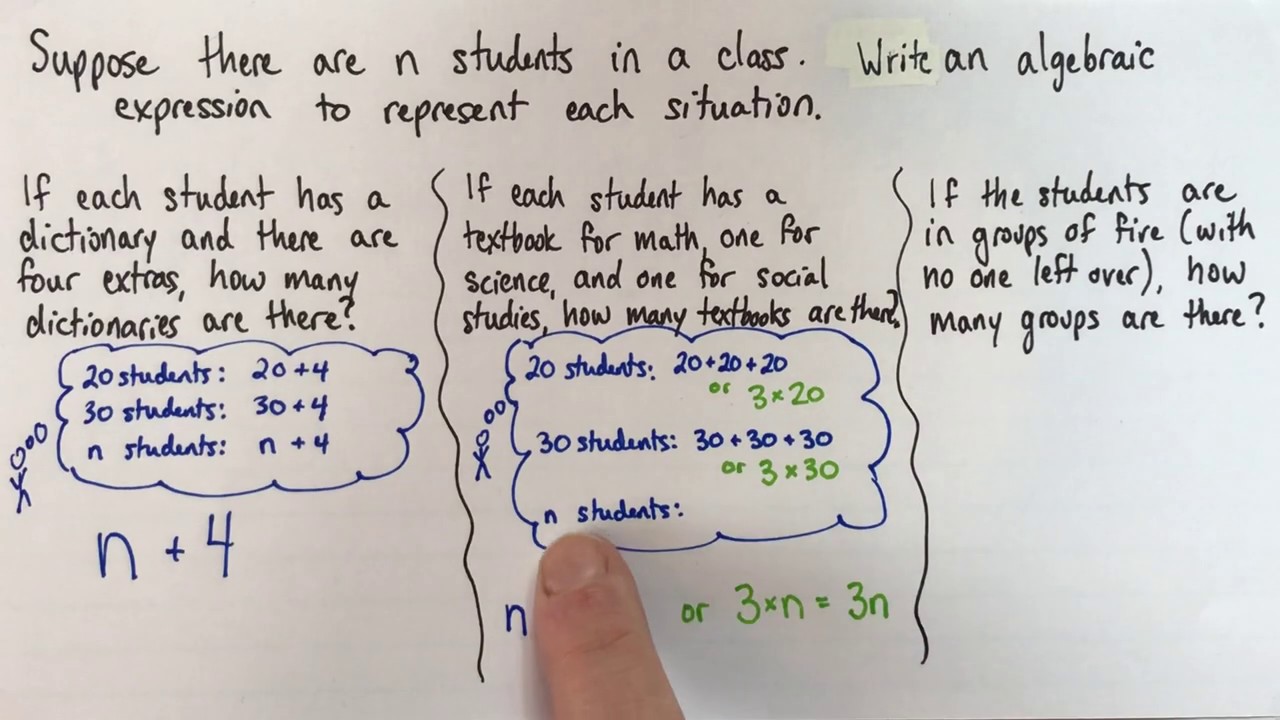 Suppose there are n students in a class. Write an algebraic
expression to represent each situation.
If each student has a
dictionary and there are
four extras, how many
dictionaries are there?
20 students: 20 + 4
30 students: 30 + 4
n students: n + 4
n + 4
If each student has a
textbook for math, one for
science, and one for social
studies, how many textbooks are there?
20 students: 20 + 20 + 20
or 3 × 20
30 students: 30 + 30 + 30
or 3 × 30
n students:
n or 3 × n = 3n
If the students are
in groups of five (with
no one left over), how
many groups are there?